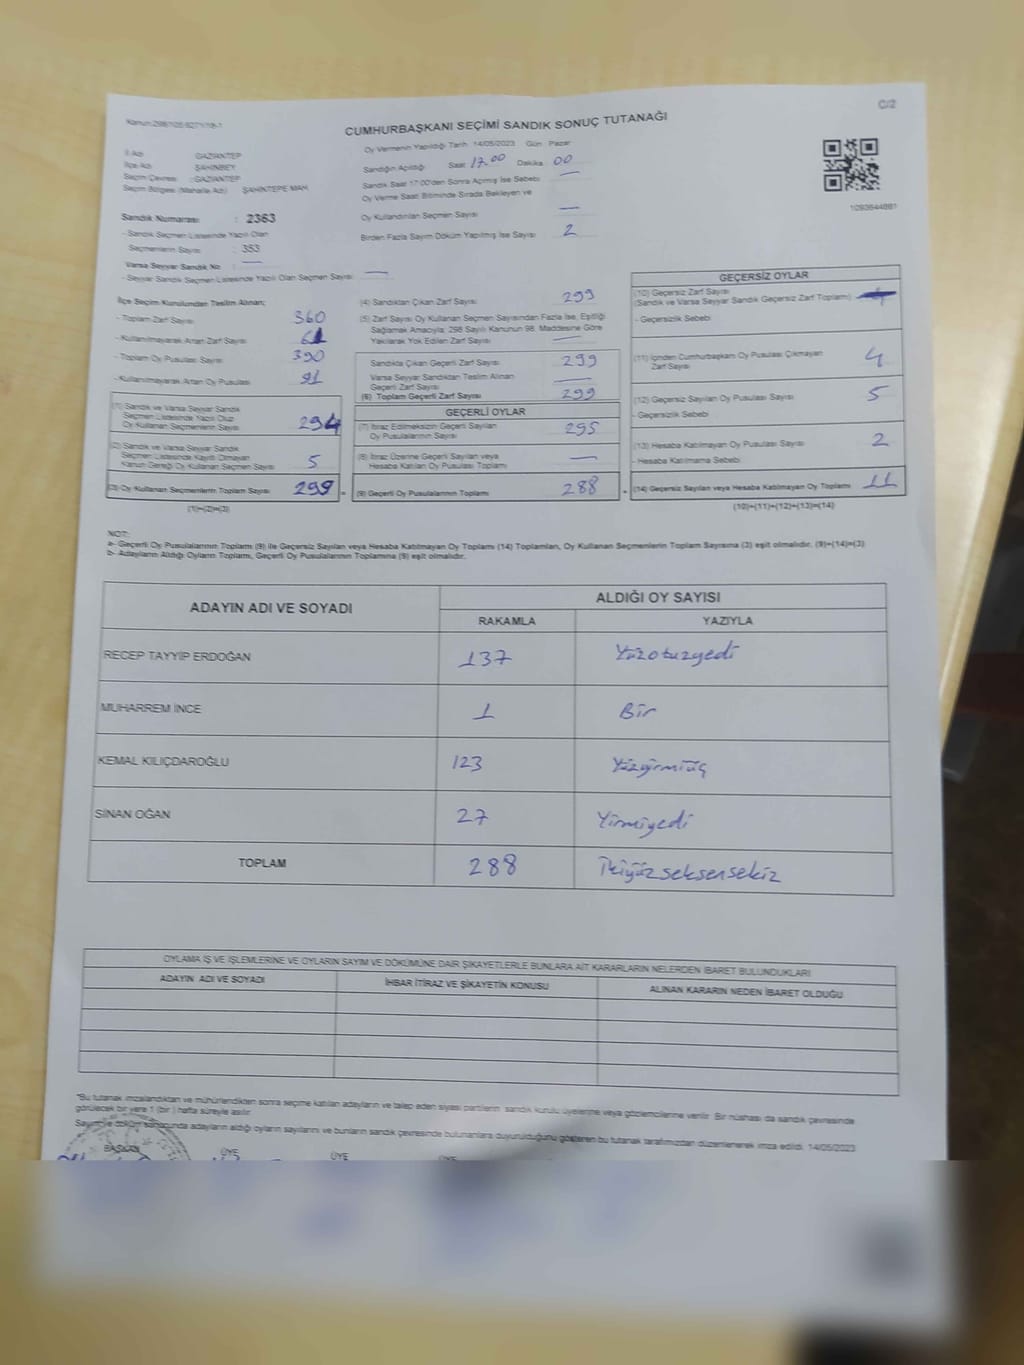 C/2
CUMHURBAŞKANI SEÇİMİ SANDIK SONUÇ TUTANAĞI
İl Adı : GAZİANTEP
İlçe Adı : ŞAHİNBEY
Seçim Çevresi : GAZİANTEP
Seçim Bölgesi (Mahalle Adı) : ŞAHİNTEPE MAH.
Sandık Numarası : 2363
- Sandık Seçmen Listesinde Yazılı Olan
Seçmenlerin Sayısı : 353
Varsa Seyyar Sandık No : —
- Seyyar Sandık Seçmen Listesinde Yazılı Olan Seçmen Sayısı : —
Oy Vermenin Yapıldığı Tarih 14/05/2023 Gün Pazar
Sandığın Açıldığı Saat 17.00 Dakika 00
Sandık Saat 17:00'den Sonra Açılmış İse Sebebi —
Oy Verme Saati Bitiminde Sırada Bekleyen ve
Oy Kullandırılan Seçmen Sayısı —
Birden Fazla Sayım Döküm Yapılmış İse Sayısı 2
1093644881
İlçe Seçim Kurulundan Teslim Alınan;
- Toplam Zarf Sayısı 360
- Kullanılmayarak Artan Zarf Sayısı 61
- Toplam Oy Pusulası Sayısı 390
- Kullanılmayarak Artan Oy Pusulası 91
(1) Sandık ve Varsa Seyyar Sandık
Seçmen Listesinde Yazılı Olup
Oy Kullanan Seçmenlerin Sayısı 294
(2) Sandık ve Varsa Seyyar Sandık
Seçmen Listesinde Kayıtlı Olmayan
Kanun Gereği Oy Kullanan Seçmen Sayısı 5
(3) Oy Kullanan Seçmenlerin Toplam Sayısı 299
(1)+(2)=(3)
(4) Sandıktan Çıkan Zarf Sayısı 299
(5) Zarf Sayısı Oy Kullanan Seçmen Sayısından Fazla İse, Eşitliği
Sağlamak Amacıyla; 298 Sayılı Kanunun 98. Maddesine Göre
Yakılarak Yok Edilen Zarf Sayısı —
Sandıkta Çıkan Geçerli Zarf Sayısı 299
Varsa Seyyar Sandıktan Teslim Alınan
Geçerli Zarf Sayısı —
(6) Toplam Geçerli Zarf Sayısı 299
GEÇERLİ OYLAR
(7) İtiraz Edilmeksizin Geçerli Sayılan
Oy Pusulalarının Sayısı 295
(8) İtiraz Üzerine Geçerli Sayılan veya
Hesaba Katılan Oy Pusulası Toplamı —
= (9) Geçerli Oy Pusulalarının Toplamı 288
GEÇERSİZ OYLAR
(10) Geçersiz Zarf Sayısı
(Sandık ve Varsa Seyyar Sandık Geçersiz Zarf Toplamı)
- Geçersizlik Sebebi:
(11) İçinden Cumhurbaşkanı Oy Pusulası Çıkmayan
Zarf Sayısı 4
(12) Geçersiz Sayılan Oy Pusulası Sayısı 5
- Geçersizlik Sebebi
(13) Hesaba Katılmayan Oy Pusulası Sayısı 2
- Hesaba Katılmama Sebebi
+ (14) Geçersiz Sayılan veya Hesaba Katılmayan Oy Toplamı 11
(10)+(11)+(12)+(13)=(14)
NOT:
a- Geçerli Oy Pusulalarının Toplamı (9) ile Geçersiz Sayılan veya Hesaba Katılmayan Oy Toplamı (14) Toplamları, Oy Kullanan Seçmenlerin Toplam Sayısına (3) eşit olmalıdır. (9)+(14)=(3)
b- Adayların Aldığı Oyların Toplamı, Geçerli Oy Pusulalarının Toplamına (9) eşit olmalıdır.
ADAYIN ADI VE SOYADI ALDIĞI OY SAYISI
RAKAMLA YAZIYLA
RECEP TAYYİP ERDOĞAN 137 Yüzotuzyedi
MUHARREM İNCE 1 Bir
KEMAL KILIÇDAROĞLU 123 Yüzyirmiüç
SİNAN OĞAN 27 Yirmiyedi
TOPLAM 288 İkiyüzseksensekiz
OYLAMA İŞ VE İŞLEMLERİNE VE OYLARIN SAYIM VE DÖKÜMÜNE DAİR ŞİKAYETLERLE BUNLARA AİT KARARLARIN NELERDEN İBARET BULUNDUKLARI
ADAYIN ADI VE SOYADI İHBAR İTİRAZ VE ŞİKAYETİN KONUSU ALINAN KARARIN NEDEN İBARET OLDUĞU
"Bu tutanak imzalandıktan ve mühürlendikten sonra seçime katılan adayların ve talep eden siyasi partilerin sandık kurulu üyelerine veya gözlemcilerine verilir. Bir nüshası da sandık çevresinde
görülecek bir yere 1 (bir ) hafta süreyle asılır.
Sayım ve döküm sonucunda adayların aldığı oyların sayılarını ve bunların sandık çevresinde bulunanlara duyurulduğunu gösteren bu tutanak tarafımızdan düzenlenerek imza edildi. 14/05/2023
BAŞKAN ÜYE ÜYE ÜYE